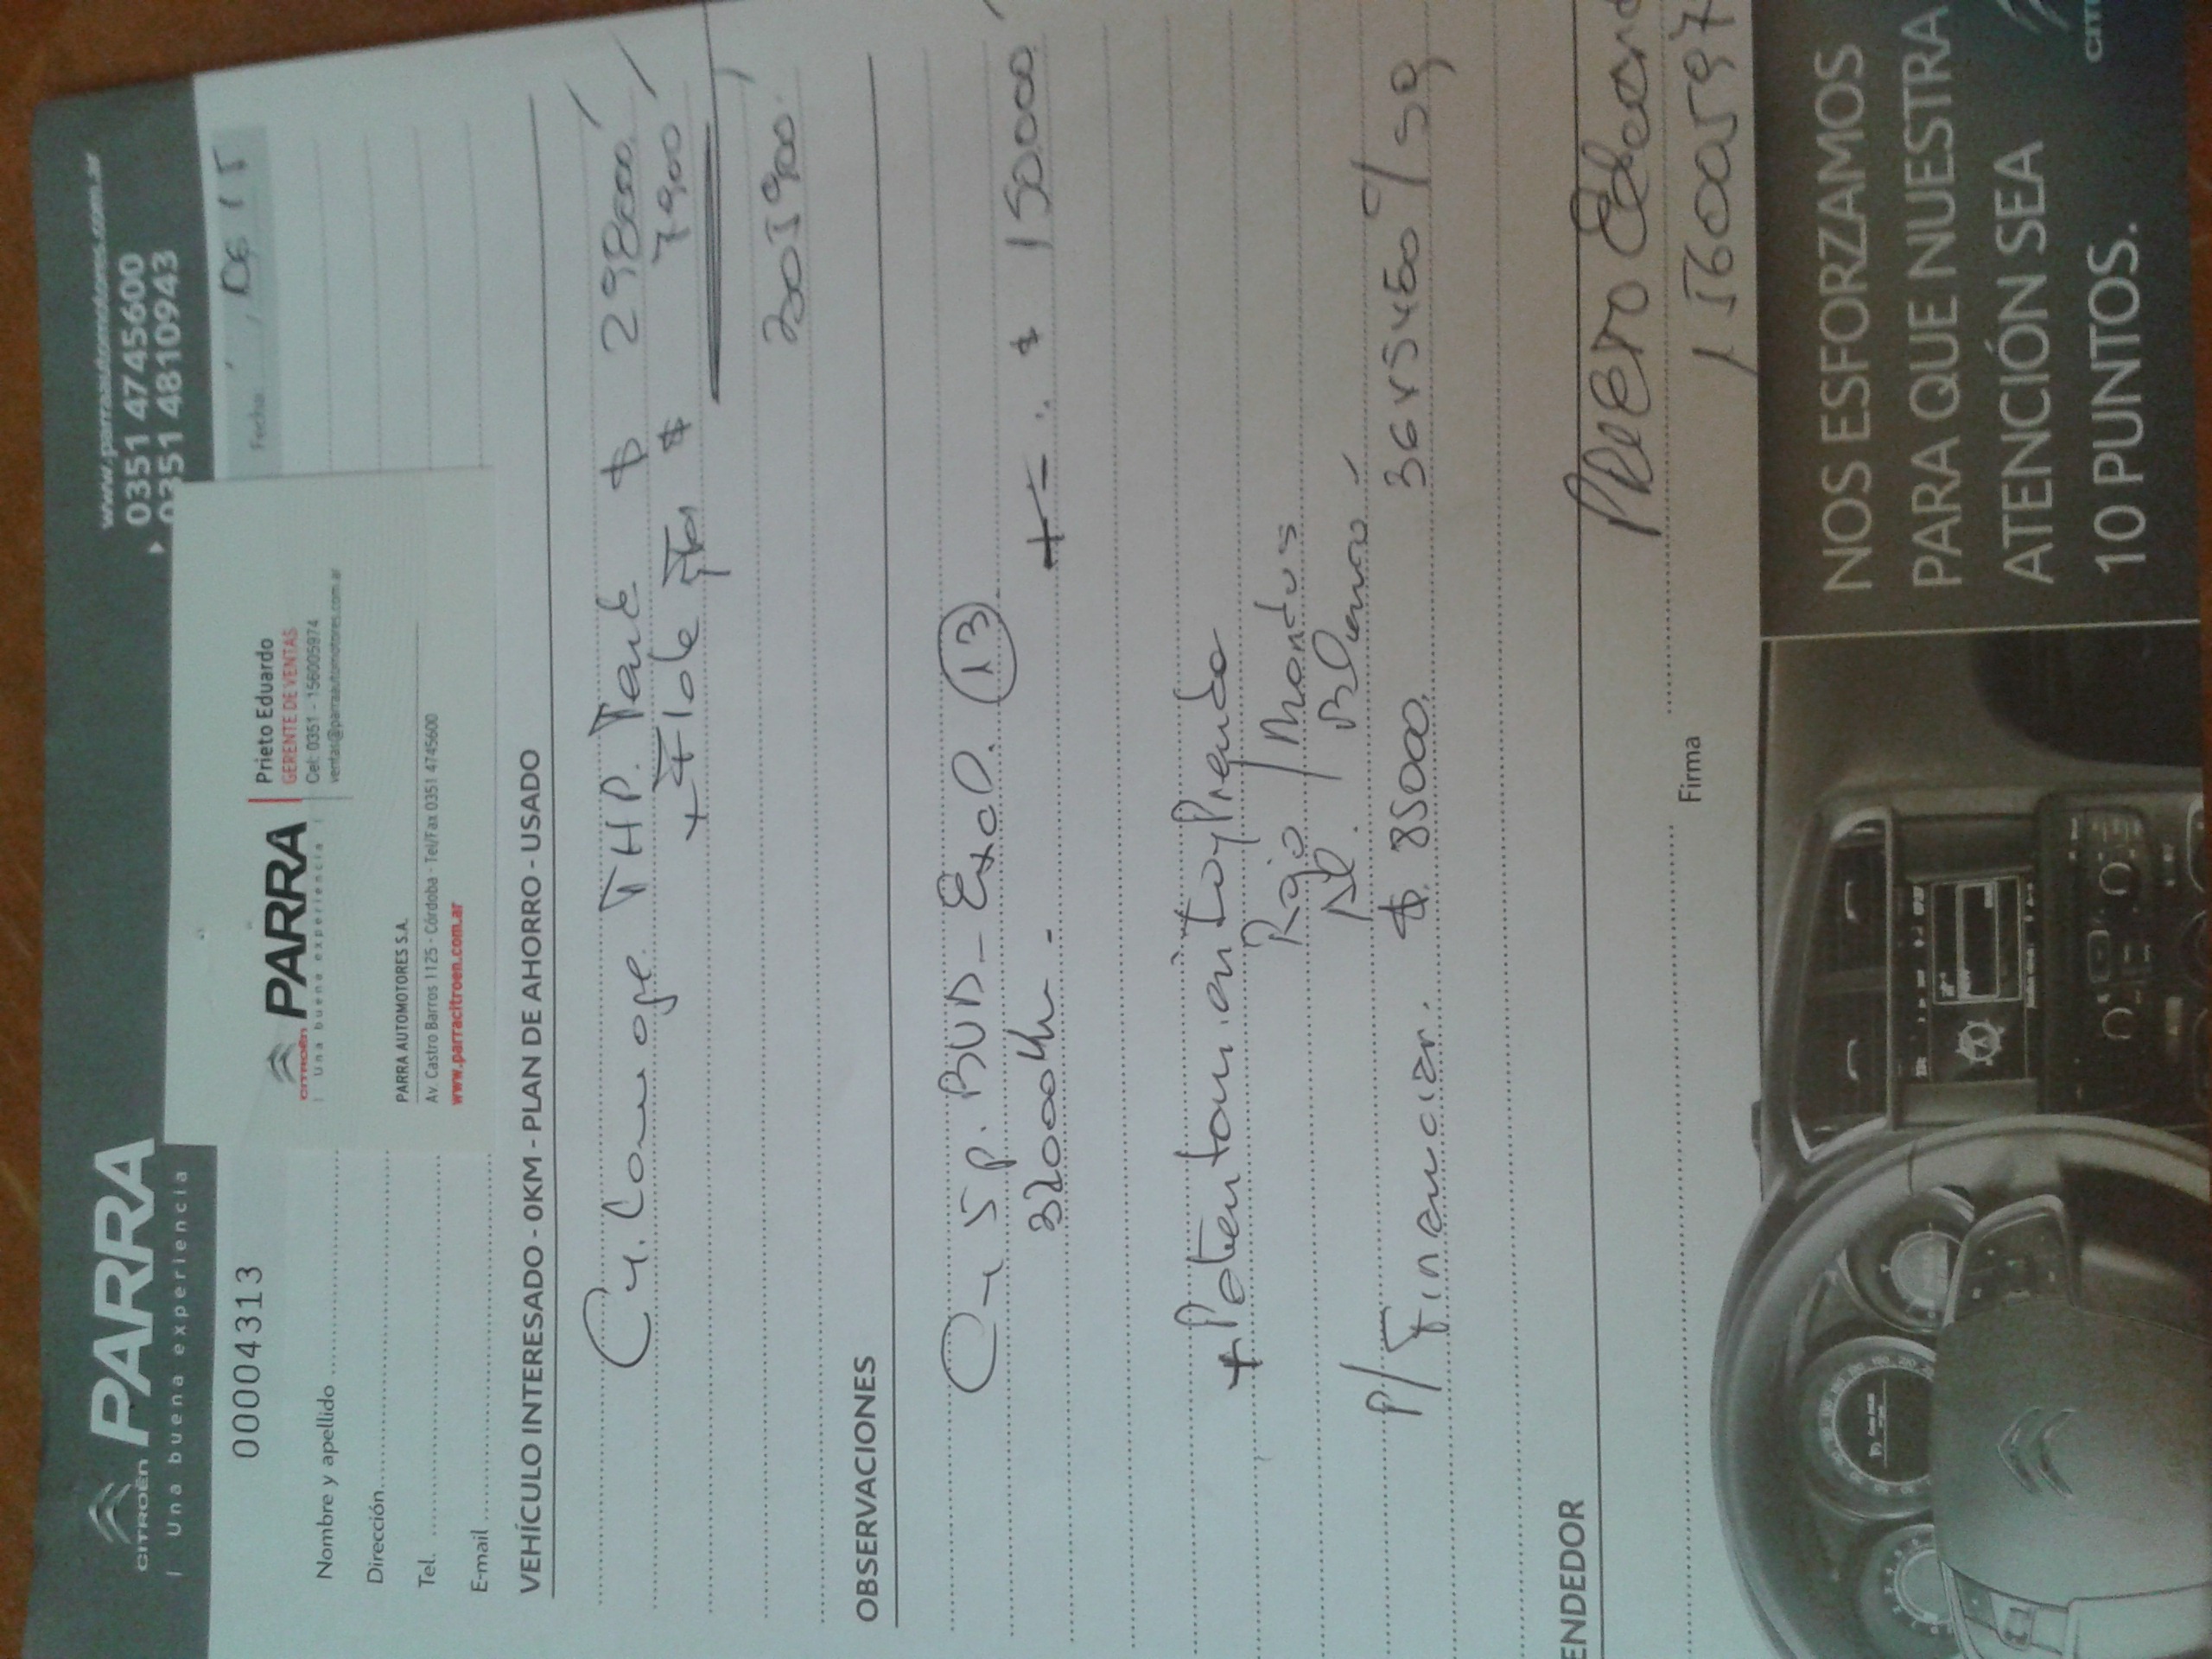 CITROËN PARRA
Una buena experiencia
www.parraautomotores.com.ar
0351 4745600
0351 4810943
00004313
Fecha 06 15
Nombre y apellido
Dirección
Tel.
E-mail
CITROËN PARRA
Una buena experiencia
Prieto Eduardo
GERENTE DE VENTAS
Cel: 0351 - 156005974
ventas@parraautomotores.com.ar
PARRA AUTOMOTORES S.A.
Av. Castro Barros 1125 - Córdoba - Tel/Fax 0351 4745600
www.parracitroen.com.ar
VEHÍCULO INTERESADO - 0KM - PLAN DE AHORRO - USADO
C4. Lounge THP. $ 298000
+ Flete $ 7900
305900
OBSERVACIONES
C4 5p. Excl. 13
32000 Km - + - $ 150.000
+ Patentamiento y Prenda
Rojo /
Al. Blanco -
P/ Financiar. $ 85000. 36x5460 c/
ENDEDOR
PRIETO Eduard
Firma
15600597
NOS ESFORZAMOS
PARA QUE NUESTRA
ATENCIÓN SEA
10 PUNTOS.
CIT